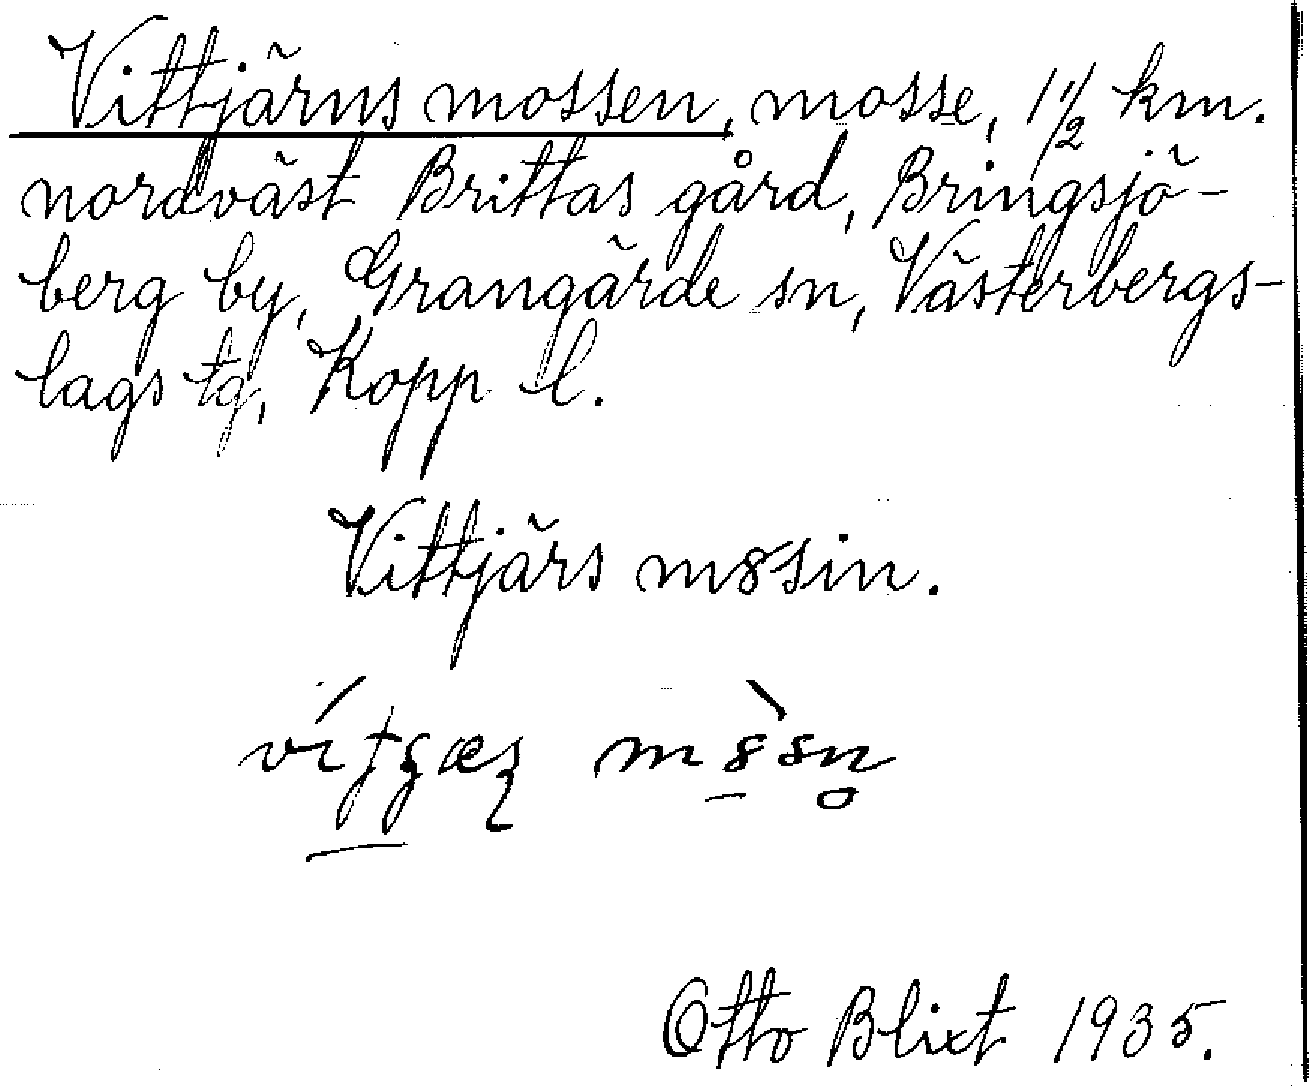 Vittjärns mossen, mosse, 1 1/2 km.
nordväst Brittas gård, Bringsjö-
berg by, Grangärde sn, Västerbergs-
lags tg, Kopp l.
Vittjärs m8sin.
m8sn
Otto Blixt 1935.